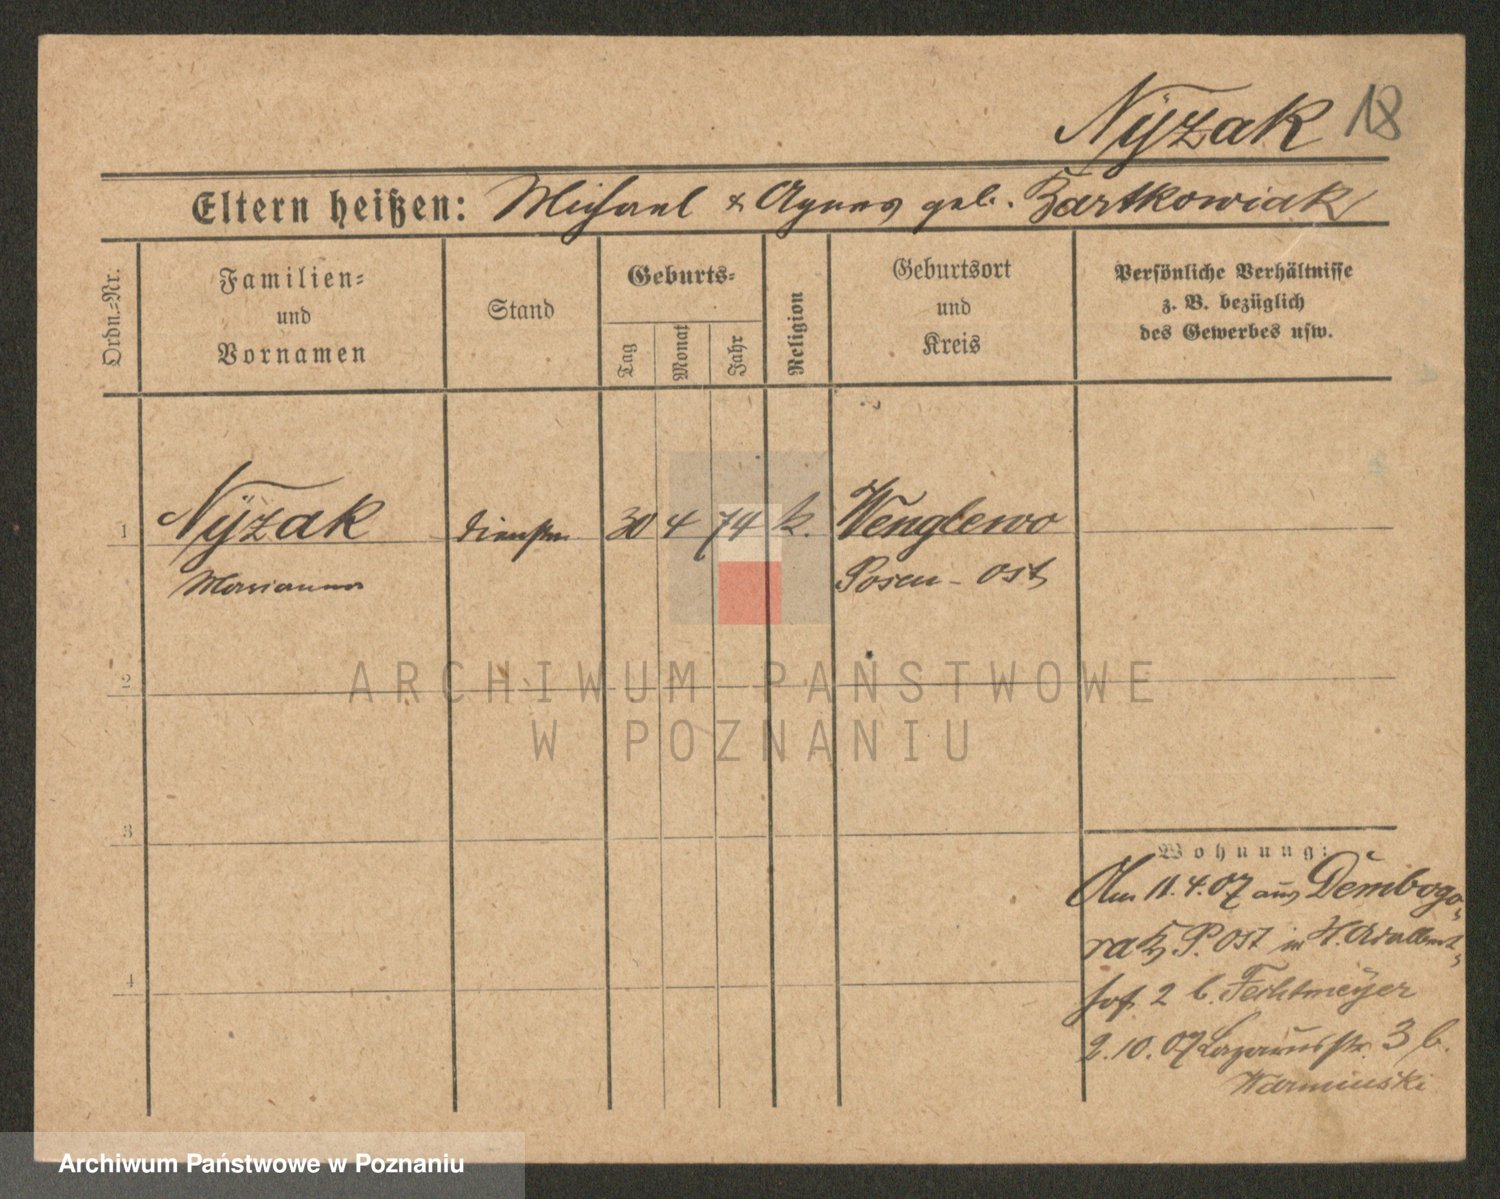 Nÿzak 18
Eltern heißen: Michael & Agnes geb. Bartkowiak
Ordn.-Nr.
Familien-
und
Vornamen
Stand
Geburts-
Tag
Monat
Jahr
Religion
Geburtsort
und
Kreis
Persönliche Verhältnisse
z. B. bezüglich
des Gewerbes usw.
1 Nÿzak 30 4 74 k. Wenglewo
Marianna Posen-Ost
2
3
4
Wohnung:
Am 11.4.07 aus Dembogo-
ra Kr. P. Ost in
hof 2 b. Fechtmeÿer
2.10.07 Lazarusstr. 3 b.
Warminski
ARCHIWUM PAŃSTWOWE
W POZNANIU
Archiwum Państwowe w Poznaniu